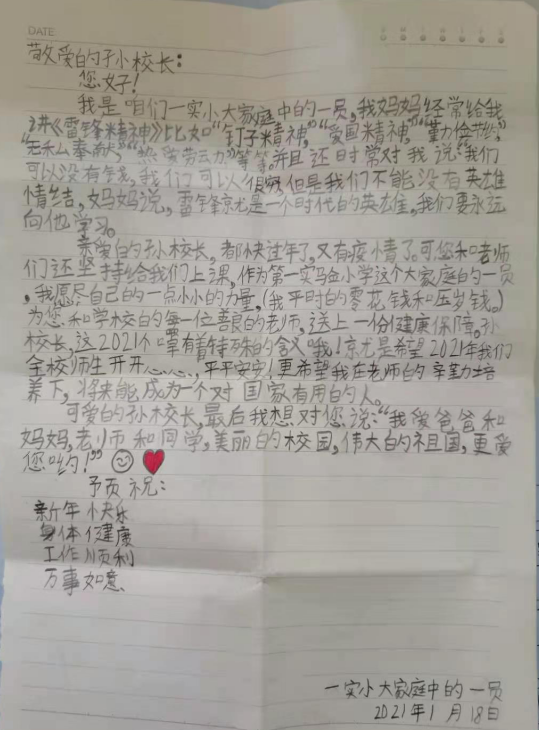 DATE
敬爱的孙校长:
您好!
我是咱们一实小大家庭中的一员,我妈妈经常给我
讲《雷锋精神》比如“钉子精神”,“爱国精神”,“勤俭节约”,
“无私奉献”,“热爱劳动”等等。并且还时常对我说:“我们
可以没有钱,我们可以很穷,但是我们不能没有英雄
情结,妈妈说,雷锋就是一个时代的英雄,我们要永远
向他学习。
亲爱的孙校长,都快过年了,又有疫情了。可您和老师
们还坚持给我们上课,作为第一实验小学这个大家庭的一员
,我愿尽自己的一点小小的力量,(我平时的零花钱和压岁钱。)
为您和学校的每一位善良的老师,送上一份健康保障。孙
校长,这2021个口罩有着特殊的含义哦!就是希望2021年我们
全校师生开开心心、平平安安!更希望我在老师的辛勤培
养下,将来能成为一个对国家有用的人。
可爱的孙校长,最后我想对您说:“我爱爸爸和
妈妈,老师和同学,美丽的校园,伟大的祖国,更爱
您哟!”
预祝:
新年快乐
身体健康
工作顺利
万事如意
一实小大家庭中的一员
2021年1月18日